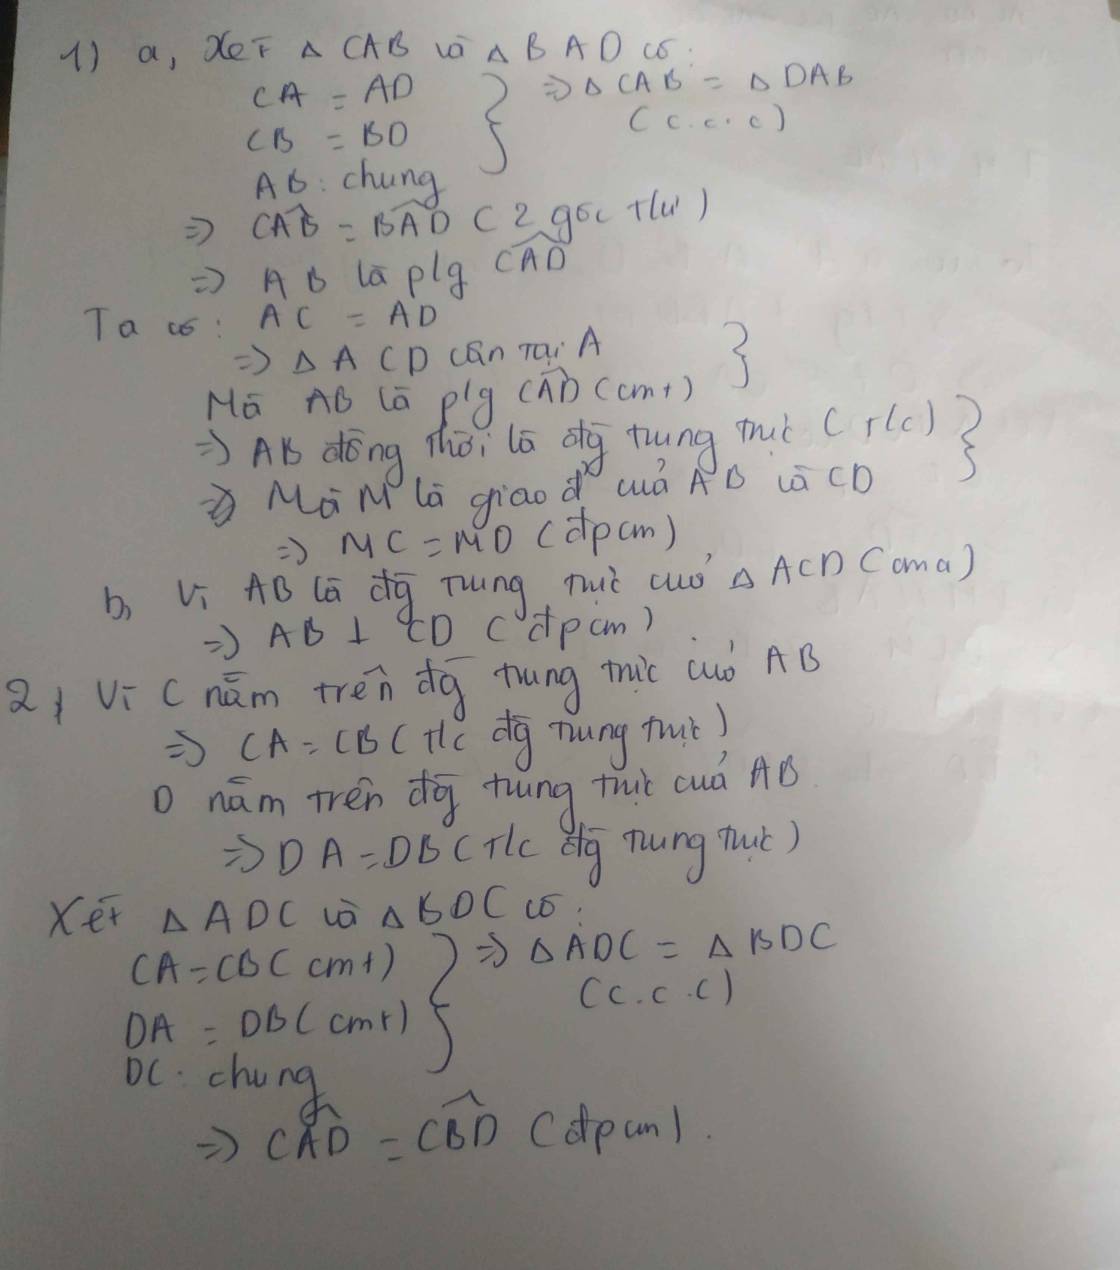 1) a, Xét Δ CAB và Δ BAD có:
CA = AD
CB = BD
AB : chung
⇒ Δ CAB = Δ DAB
(c.c.c)
⇒ CAB = BAD (2 góc t/ư)
⇒ AB là p/g CAD
Ta có: AC = AD
⇒ Δ ACD cân tại A
Mà AB là p/g CAD (cmt)
⇒ AB đồng thời là đg trung trực (t/c)
Mà M là giao đ' của AB và CD
⇒ MC = MD (đpcm)
b, Vì AB là đg trung trực của Δ ACD (cma)
⇒ AB ⊥ CD (đpcm)
2, Vì C nằm trên đg trung trực của AB
⇒ CA = CB (t/c đg trung trực)
D nằm trên đg trung trực của AB
⇒ DA = DB (t/c đg trung trực)
Xét Δ ADC và Δ BDC có:
CA = CB (cmt)
DA = DB (cmt)
DC : chung
⇒ Δ ADC = Δ BDC
(c.c.c)
⇒ CAD = CBD (đpcm).